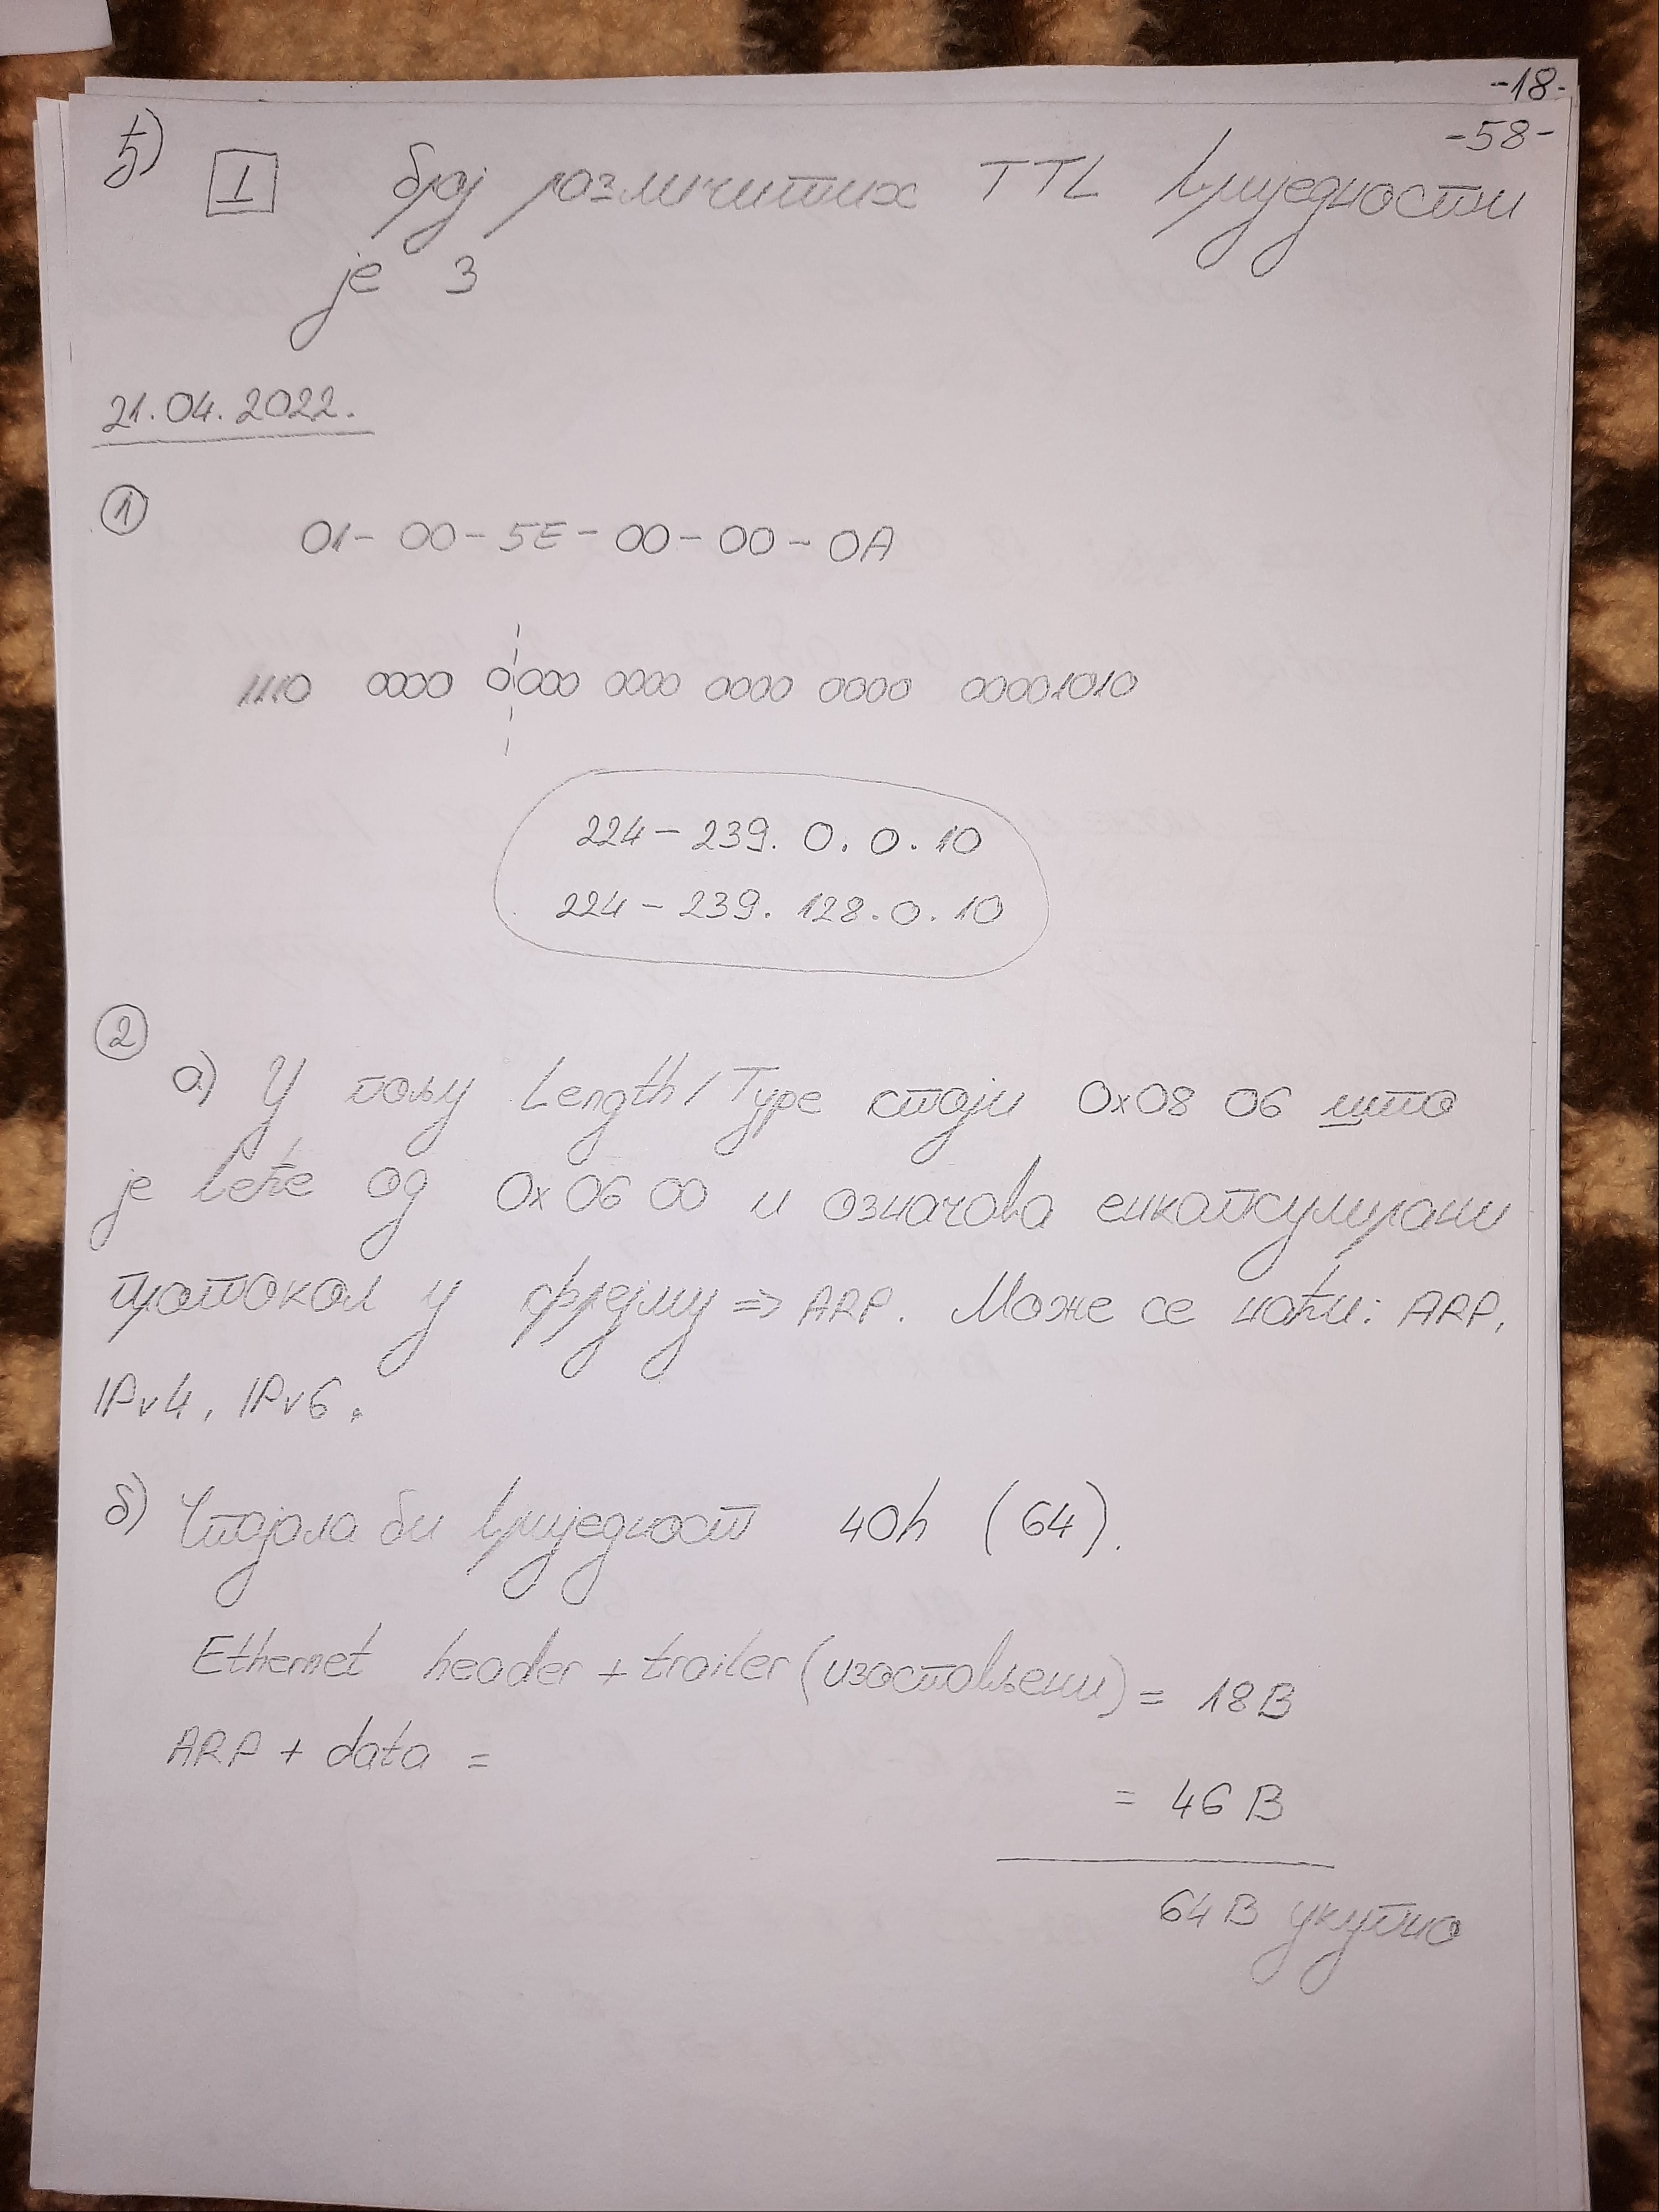 -18-
-58-
ђ) I број различитих TTL вриједности
је 3
21.04.2022.
1
01-00-5E-00-00-0A
1110 0000 0000 0000 0000 0000 00001010
224-239.0.0.10
224-239.128.0.10
2
а) У пољу Length/Type стоји 0x08 06 што
је веће од 0x06 00 и означава енкапсулирани
протокол у фрејму => ARP. Може се наћи: ARP,
IPv4, IPv6.
б) Стајала би вриједност 40h (64).
Ethernet header + trailer (изостављени) = 18B
ARP + data =
= 46 B
64B укупно